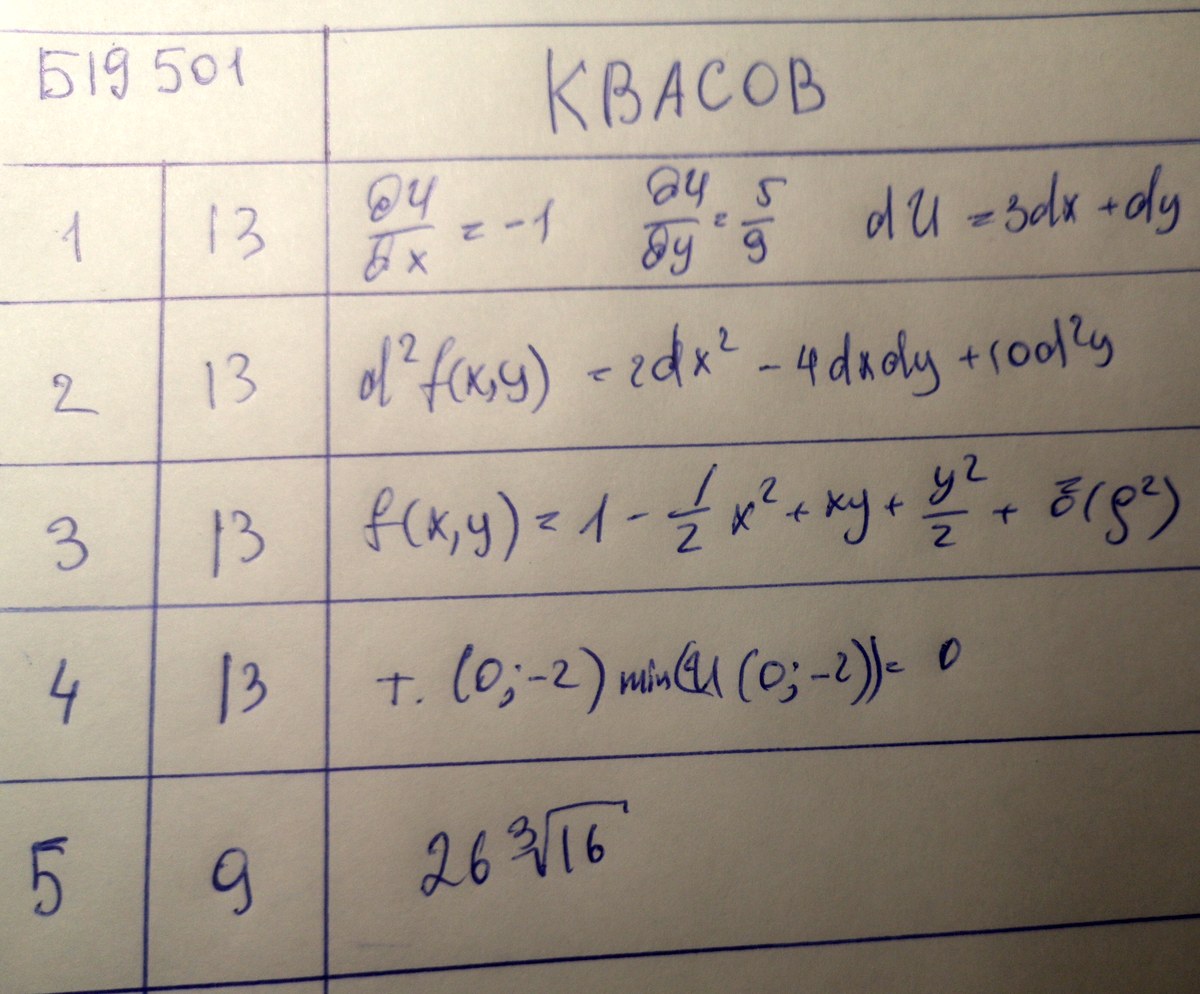 Б19 501 КВАСОВ
1 13 ∂U/∂x = -1 ∂U/∂y = 5/9 dU = 3dx + dy
2 13 d²f(x,y) = 2dx² - 4dxdy + 10d²y
3 13 f(x,y) = 1 - 1/2 x² + xy + y²/2 + ō(ρ²)
4 13 т. (0;-2) min(U(0;-2)) = 0
5 9 26 ∛16